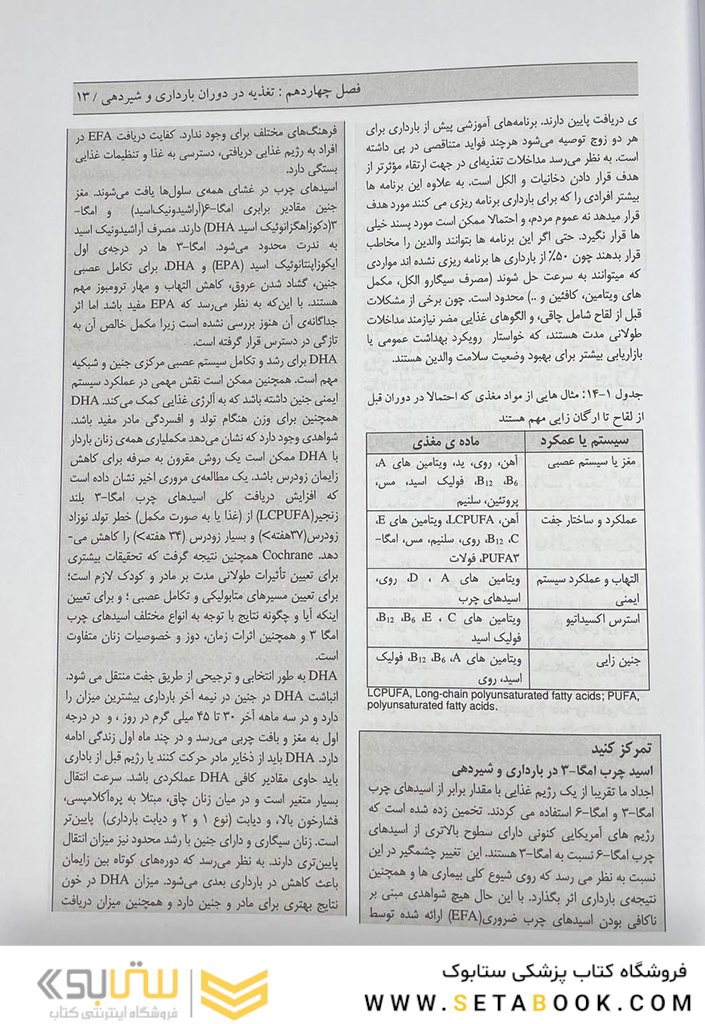 فصل چهاردهم : تغذیه در دوران بارداری و شیردهی / ۱۳
ی دریافت پایین دارند. برنامه‌های آموزشی پیش از بارداری برای
هر دو زوج توصیه می‌شود هرچند فواید متناقصی در پی داشته
است. به نظر می‌رسد مداخلات تغذیه‌ای در جهت ارتقاء مؤثرتر از
هدف قرار دادن دخانیات و الکل است. به علاوه این برنامه ها
بیشتر افرادی را که برای بارداری برنامه ریزی می کنند مورد هدف
قرار میدهد نه عموم مردم، و احتمالا ممکن است مورد پسند خیلی
ها قرار نگیرد. حتی اگر این برنامه ها بتوانند والدین را مخاطب
قرار بدهند چون ۵۰٪ از بارداری ها برنامه ریزی نشده اند مواردی
که میتوانند به سرعت حل شوند (مصرف سیگارو الکل، مکمل
های ویتامین، کافئین و ..) محدود است. چون برخی از مشکلات
قبل از لقاح شامل چاقی، و الگوهای غذایی مضر نیازمند مداخلات
طولانی مدت هستند، که خواستار رویکرد بهداشت عمومی یا
بازاریابی بیشتر برای بهبود وضعیت سلامت والدین هستند.
جدول ۱-۱۴: مثال هایی از مواد مغذی که احتمالا در دوران قبل
از لقاح تا ارگان زایی مهم هستند
سیستم یا عمکرد ماده ی مغذی
مغز یا سیستم عصبی آهن، روی، ید، ویتامین های A،
B6، B12، فولیک اسید، مس،
پروتئین، سلنیم
عملکرد و ساختار جفت آهن، LCPUFA، ویتامین های E،
C، B12، روی، سلنیم، مس، امگا-
PUFA۳، فولات
التهاب و عملکرد سیستم ویتامین های A ، D، روی،
ایمنی اسیدهای چرب
استرس اکسیداتیو ویتامین های C ، E، B6، B12،
فولیک اسید
جنین زایی ویتامین های A، B6، B12، فولیک
اسید، روی
LCPUFA, Long-chain polyunsaturated fatty acids; PUFA,
polyunsaturated fatty acids.
تمرکز کنید
اسید چرب امگا-۳ در بارداری و شیردهی
اجداد ما تقریبا از یک رژیم غذایی با مقدار برابر از اسیدهای چرب
امگا-۳ و امگا-۶ استفاده می کردند. تخمین زده شده است که
رژیم های آمریکایی کنونی دارای سطوح بالاتری از اسیدهای
چرب امگا-۶ نسبت به امگا-۳ هستند. این تغییر چشمگیر در این
نسبت به نظر می رسد که روی شیوع کلی بیماری ها و همچنین
نتیجه‌ی بارداری اثر بگذارد. با این حال هیچ شواهدی مبنی بر
ناکافی بودن اسیدهای چرب ضروری(EFA) ارائه شده توسط
فرهنگ‌های مختلف برای وجود ندارد. کفایت دریافت EFA در
افراد به رژیم غذایی دریافتی، دسترسی به غذا و تنظیمات غذایی
بستگی دارد.
اسیدهای چرب در غشای همه‌ی سلول‌ها یافت می‌شوند. مغز
جنین مقادیر برابری امگا-۶(آراشیدونیک‌اسید) و امگا-
۳(دکوزاهگزانوئیک اسید DHA) دارند. مصرف آراشیدونیک اسید
به ندرت محدود می‌شود. امگا-۳ ها در درجه‌ی اول
ایکوزاپنتانوئیک اسید (EPA) و DHA، برای تکامل عصبی
جنین، گشاد شدن عروق، کاهش التهاب و مهار ترومبوز مهم
هستند. با این‌که به نظر می‌رسد که EPA مفید باشد اما اثر
جداگانه‌ی آن هنوز بررسی نشده است زیرا مکمل خالص آن به
تازگی در دسترس قرار گرفته است.
DHA برای رشد و تکامل سیستم عصبی مرکزی جنین و شبکیه
مهم است. همچنین ممکن است نقش مهمی در عملکرد سیستم
ایمنی جنین داشته باشد که به آلرژی غذایی کمک می‌کند. DHA
همچنین برای وزن هنگام تولد و افسردگی مادر مفید باشد.
شواهدی وجود دارد که نشان می‌دهد مکملیاری همه‌ی زنان باردار
با DHA ممکن است یک روش مقرون به صرفه برای کاهش
زایمان زودرس باشد. یک مطالعه‌ی مروری اخیر نشان داده است
که افزایش دریافت کلی اسیدهای چرب امگا-۳ بلند
زنجیر(LCPUFA) از (غذا یا به صورت مکمل) خطر تولد نوزاد
زودرس(۳۷هفته>) و بسیار زودرس (۳۴ هفته>) را کاهش می-
دهد. Cochrane همچنین نتیجه گرفت که تحقیقات بیشتری
برای تعیین تأثیرات طولانی مدت بر مادر و کودک لازم است؛
برای تعیین مسیرهای متابولیکی و تکامل عصبی ؛ و برای تعیین
اینکه آیا و چگونه نتایج با توجه به انواع مختلف اسیدهای چرب
امگا ۳ و همچنین اثرات زمان، دوز و خصوصیات زنان متفاوت
است.
DHA به طور انتخابی و ترجیحی از طریق جفت منتقل می شود.
انباشت DHA در جنین در نیمه آخر بارداری بیشترین میزان را
دارد و در سه ماهه آخر ۳۰ تا ۴۵ میلی گرم در روز ، و در درجه
اول به مغز و بافت چربی می‌رسد و در چند ماه اول زندگی ادامه
دارد. DHA باید از ذخایر مادر حرکت کنند یا رژیم قبل از باداری
باید حاوی مقادیر کافی DHA عملکردی باشد. سرعت انتقال
بسیار متغیر است و در میان زنان چاق، مبتلا به پره‌آکلامپسی،
فشارخون بالا، و دیابت (نوع ۱ و ۲ و دیابت بارداری) پایین‌تر
است. زنان سیگاری و دارای جنین با رشد محدود نیز میزان انتقال
پایین‌تری دارند. به نظر می‌رسد که دوره‌های کوتاه بین زایمان
باعث کاهش در بارداری بعدی می‌شود. میزان DHA در خون
نتایج بهتری برای مادر و جنین دارد و همچنین میزان دریافت
فروشگاه کتاب پزشکی ستابوک
WWW.SETABOOK.COM
ستابوک
فروشگاه اینترنتی کتاب